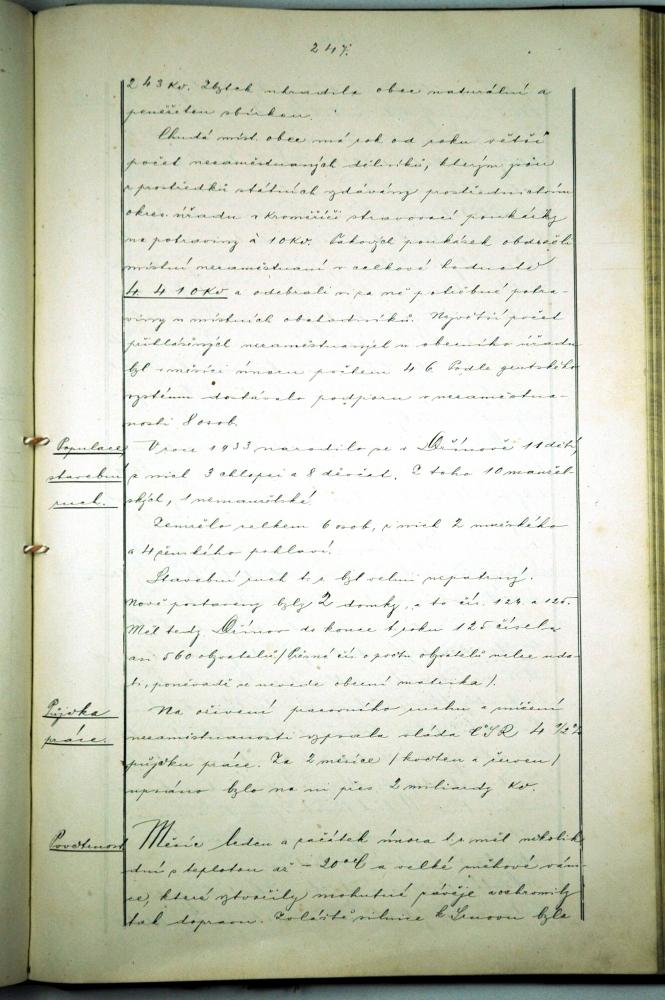 247.
243 Kč. Zbytek uhradila obec naturální a
peněžitou sbírkou.
Chudá míst. obce má rok od roku větší
počet nezaměstnaných dělníků, kterým jsou
z prostředků státních vydávány prostřednictvím
okres. úřadu v Kroměříži stravovací poukázky
na potraviny à 10 Kč. Takových poukázek obdrželi
místní nezaměstnaní v celkové hodnotě
4.410 Kč a odebrali si za ně potřebné potra-
viny u místních obchodníků. Největší počet
přihlášených nezaměstnaných u obecního úřadu
byl v měsíci únoru počtem 46. Podle gentského
systému dostávalo podporu v nezaměstna-
nosti 8 osob.
Populace
stavební
ruch.
V roce 1933 narodilo se v Dřínově 11 dětí,
z nich 3 chlapci a 8 děvčat. Z toho 10 manžel-
ských, 1 nemanželské.
Zemřelo celkem 6 osob, z nich 2 mužského
a 4 ženského pohlaví.
Stavební ruch t. r. byl velmi nepatrný.
Nově postaveny byly 2 domky, a to čís. 124. a 125.
Měl tedy Dřínov do konce t. roku 125 čísel a
asi 560 obyvatelů / o počtu obyvatelů nelze uda-
ti, poněvadž se nevede obecní matrika /.
Půjčka
práce.
Na oživení pracovního ruchu a zmírnění
nezaměstnanosti vypsala vláda ČSR 4 1/2 %
půjčku práce. Za 2 měsíce / květen a červen /
upsáno bylo na ni přes 2 miliardy Kč.
Povětrnost
Měsíc leden a začátek února t. r. měl několik
dní s teplotou až - 20° C a velké sněhové váni-
ce, které vytvořily mohutné závěje a ochromily
tak dopravu. Zvláště silnice k byla